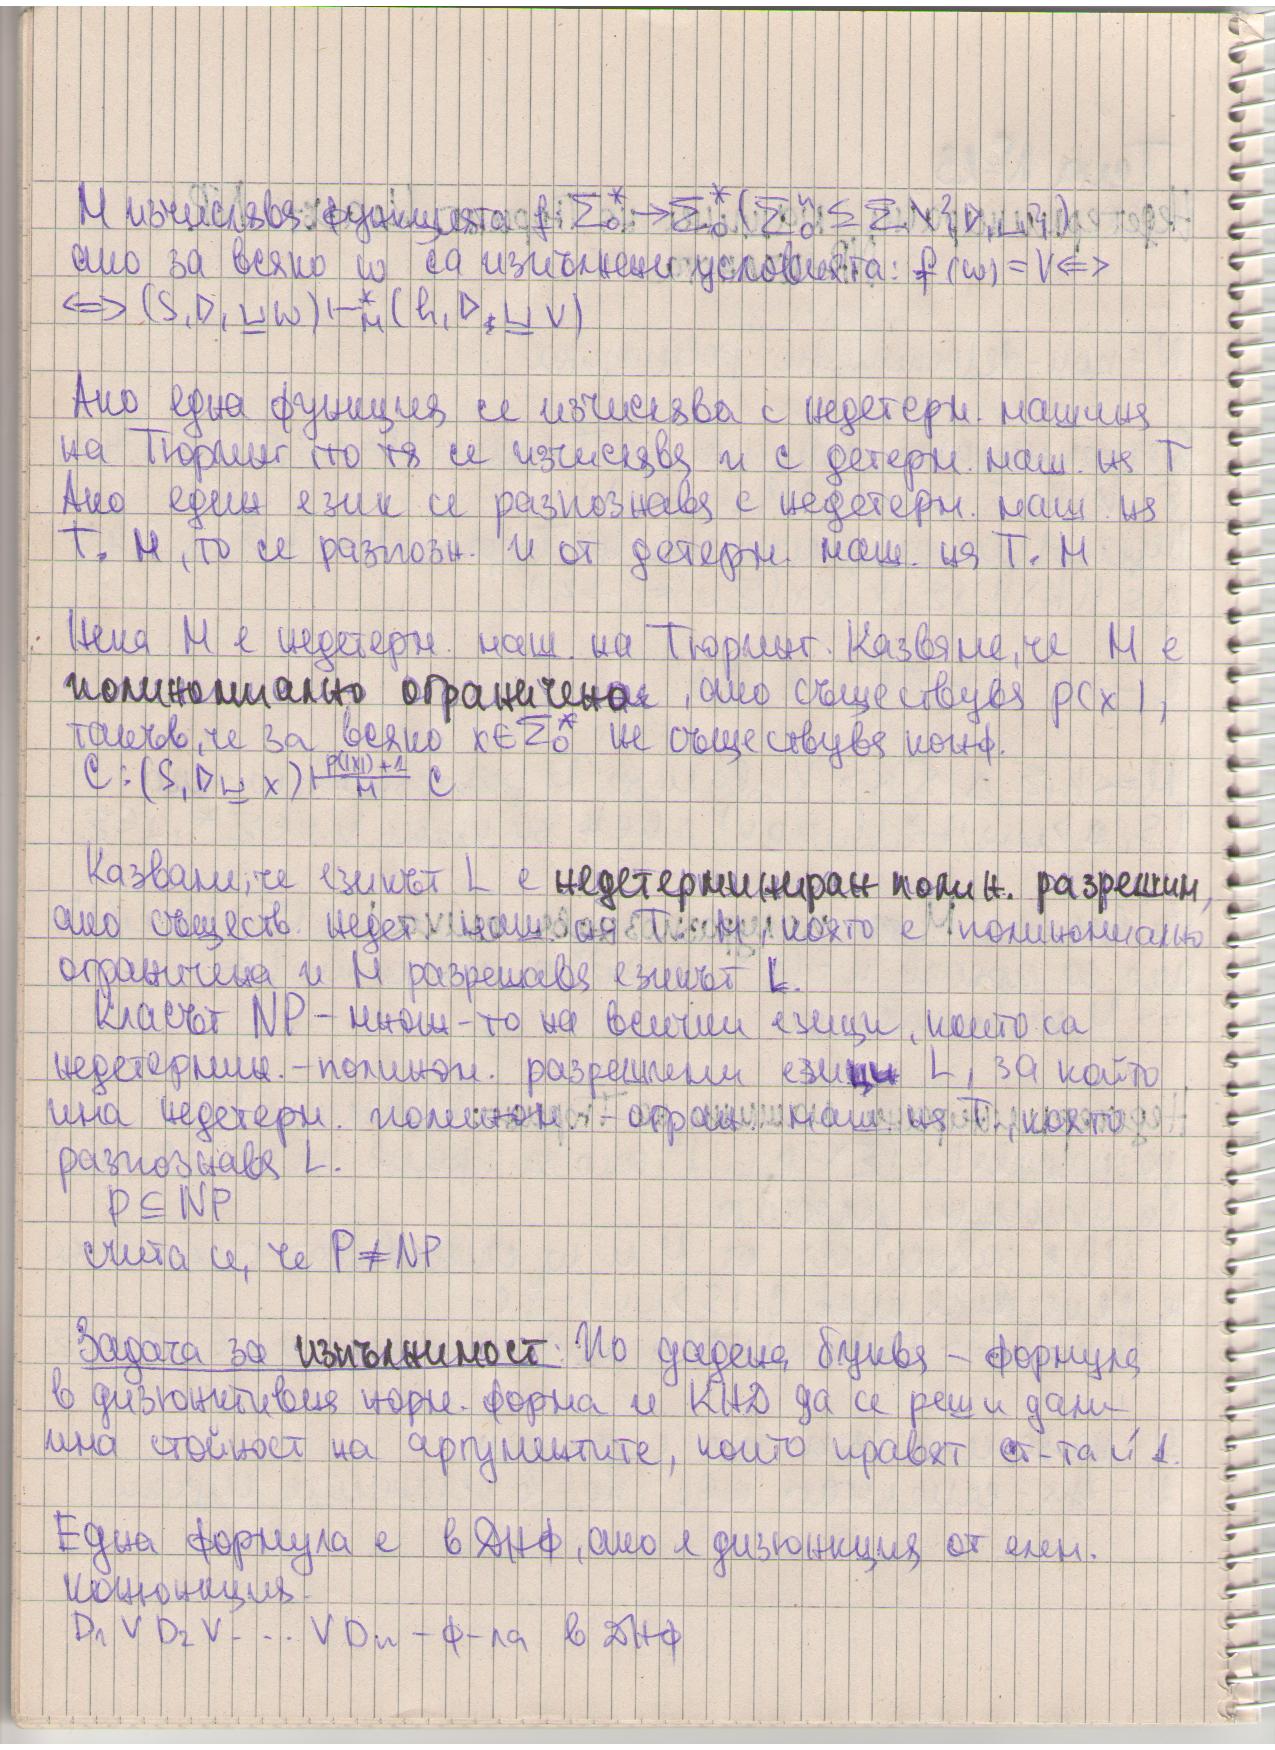 М изчислява функцията f: Σ₀* → Σ₀* (Σ₀* ⊆ Σ \ {▷, ⊔})
ако за всяко w са изпълнени условията: f(w) = V <=>
<=> (S, ▷, ⊔w) ⊢*M (h, ▷, ⊔ v)
Ако една функция се изчислява с недетерм. машина
на Тюринг то тя се изчислява и с детерм. маш. на Т
Ако един език се разпознава с недетерм. маш. на
Т. М, то се разпозн. и от детерм. маш. на Т. М
Нека М е недетерм. маш. на Тюринг. Казваме, че М е
полиномиално ограничена, ако съществува p(x),
такъв, че за всяко x∈Σ₀* не съществува конф.
C: (S, ▷⊔ x) ⊢p(|x|)+1 M C
Казвали, че езикът L е недетерминиран полин. разрешим,
ако съществ. недет. маш. на Т. М, която е полиномиално
ограничена и М разрешава езикът L.
Класът NP - множ-то на всички езици, които са
недетермин. - полином. разрешими езици L, за който
има недетерм. полином. - огран. маш. на Т, която
разпознава L.
P ⊆ NP
счита се, че P ≠ NP
Задача за изпълнимост: По дадена буква - формула
в дизюнктивна норм. форма и КНД да се реши дали
има стойност на аргументите, които правят ст-та ѝ 1.
Една формула е в ДНФ, ако е дизюнкция от елем.
конюнкция.
D₁ V D₂ V ... V Dn - ф-ла в ДНФ